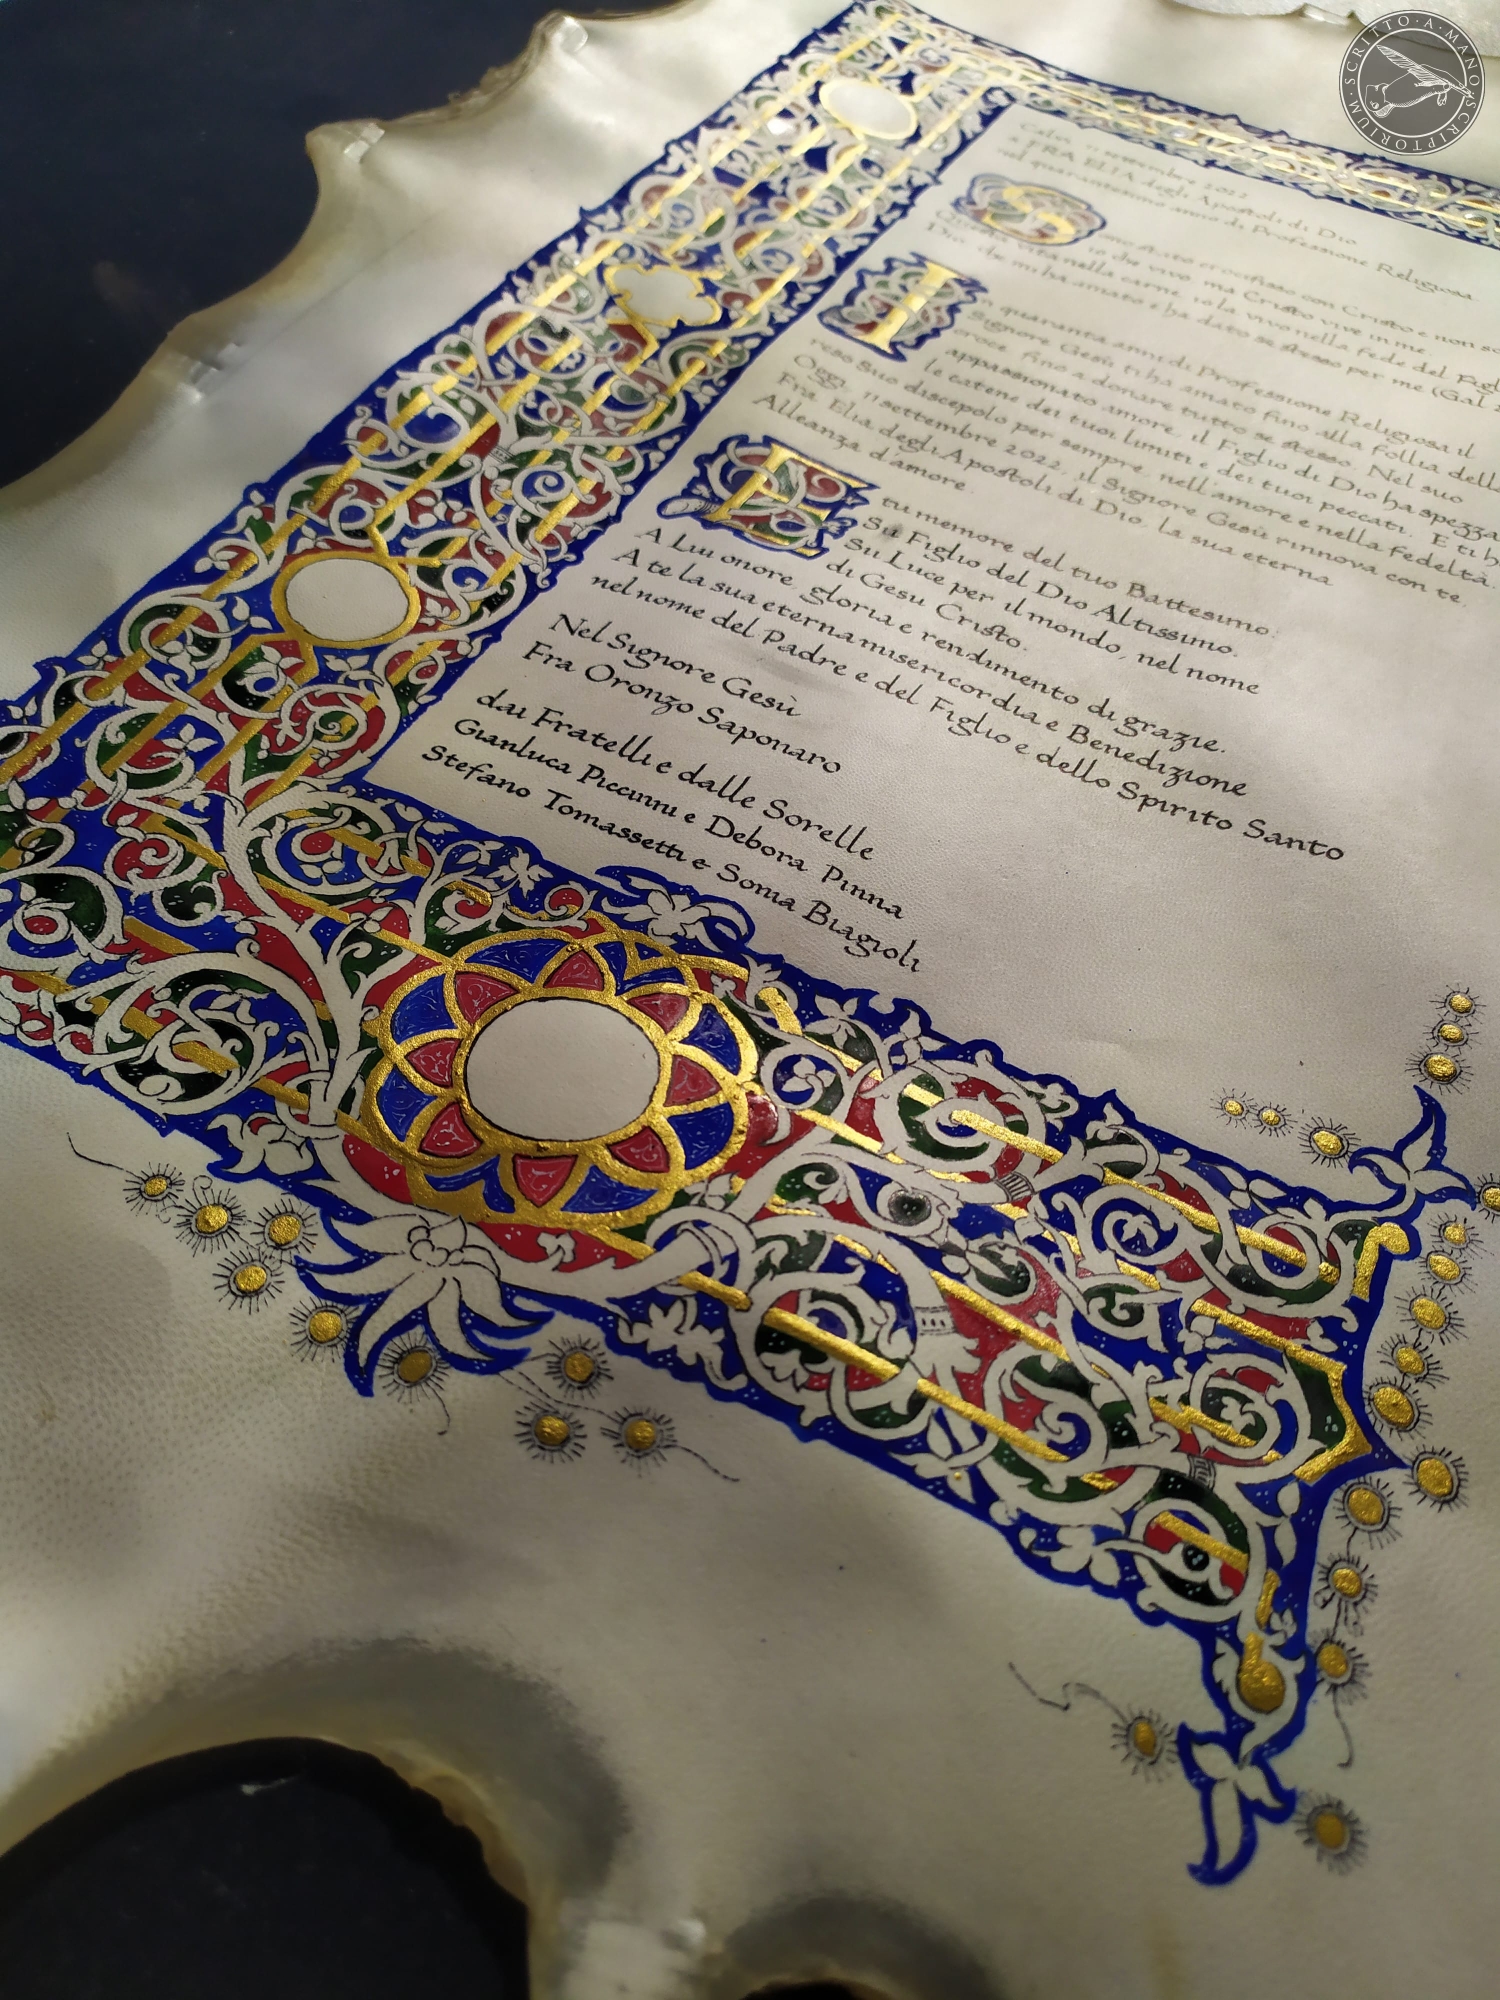 SCRITTO · A · MANO · SCRIPTORIUM ·
11 settembre 2022
a FRA ELIA degli Apostoli di Dio
nel quarantesimo anno di Professione Religiosa
Sono stato crocifisso con Cristo e non
io che vivo, ma Cristo vive in me.
Questa vita nella carne, io la vivo nella fede del
Dio che mi ha amato e ha dato se stesso per me (Gal
In quaranta anni di Professione Religiosa il
Signore Gesù ti ha amato fino alla follia della
croce fino a donare tutto se stesso. Nel suo
appassionato amore, il Figlio di Dio ha
le catene dei tuoi limiti e dei tuoi peccati. E ti
reso Suo discepolo per sempre, nell'amore e nella fedeltà.
Oggi, 11 settembre 2022, il Signore Gesù rinnova con te,
Fra Elia degli Apostoli di Dio, la sua eterna
Alleanza d'amore.
E tu memore del tuo Battesimo:
Su Figlio del Dio Altissimo.
Su Luce per il mondo, nel nome
di Gesu Cristo.
A Lui onore, gloria e rendimento di grazie.
A te la sua eterna misericordia e Benedizione
nel nome del Padre e del Figlio e dello Spirito Santo
Nel Signore Gesù
Fra Oronzo Saponaro
dai Fratelli e dalle Sorelle
Gianluca Piccinni e Debora Pinna
Stefano Tomassetti e Sonia Biagioli